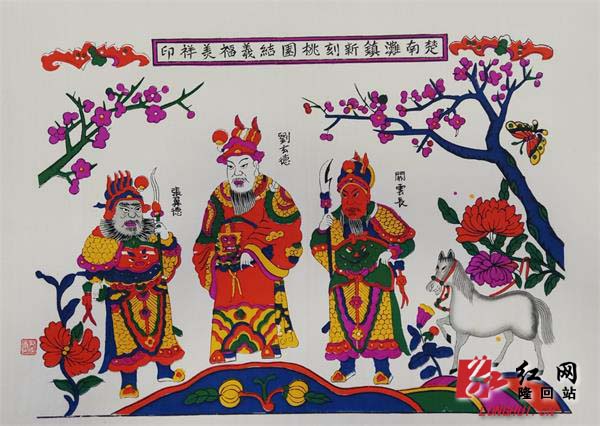 楚南灘鎮新刻桃園結義福美祥印
劉玄德
關雲長
張翼德
红网
隆回站